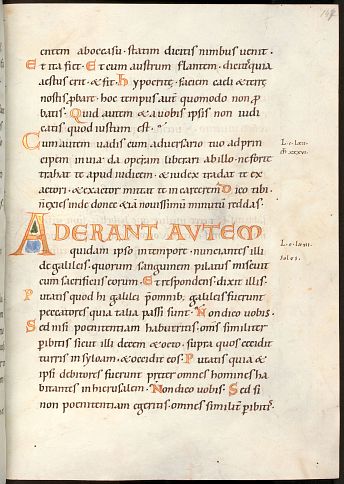 entem aboccasu. statim dicitis nimbus uenit.
Et ita fiet. Et cum austrum flantem. dicitis quia
aestus erit. & fit. hypocritę. faciem caeli & terrę
nostis ꝓbare. hoc tempus autē quomodo non ꝓ
batis. Quid autem & auobis ipsis non iudi
catis quod iustum est.
Cum autem uadis cum aduersario tuo adprin
cipem inuia da operam liberari abillo. neforte
trahat te apud iudicem. & iudex tradat te ex
actori. & exactor mittat te incarcerem. Dico tibi.
ADERANT AVTEM
quidam ipso intempore. nuntiantes illi
degalileis. quorum sanguinem pilatus miscuit
cum sacrificiis eorum. Et respondens. dixit illis.
Putatis quod hi galilei p̄omnib; galileis fuerunt
peccatores quia talia passi sunt. Non dico uobis.
Sed nisi poenitentiam habueritis. om̄s similiter
ꝑibitis sicut illi decem & octo. supra quos cecidit
turris insyloam. & occidit eos. Putatis quia &
ipsi debitores fuerunt pręter omnes homines ha
bitantes inhierusalem. Non dico uobis. Sed si
non poenitentiam egeritis. omnes similit̄ ꝑibitis.